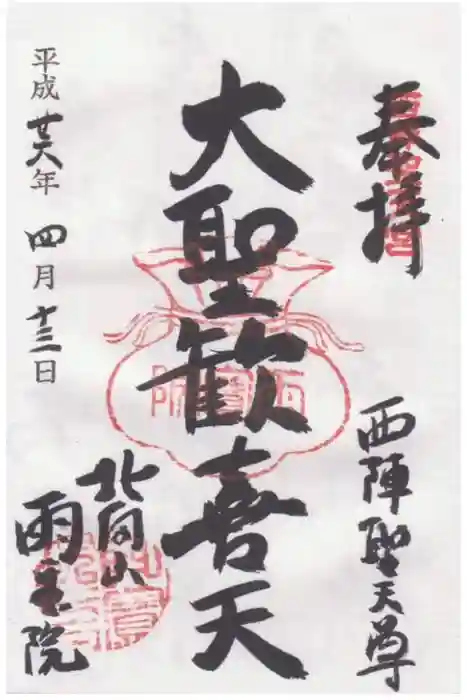 奉拝
西陣聖天尊
大聖歓喜天
北向山
雨宝院
平成廿六年 四月十三日